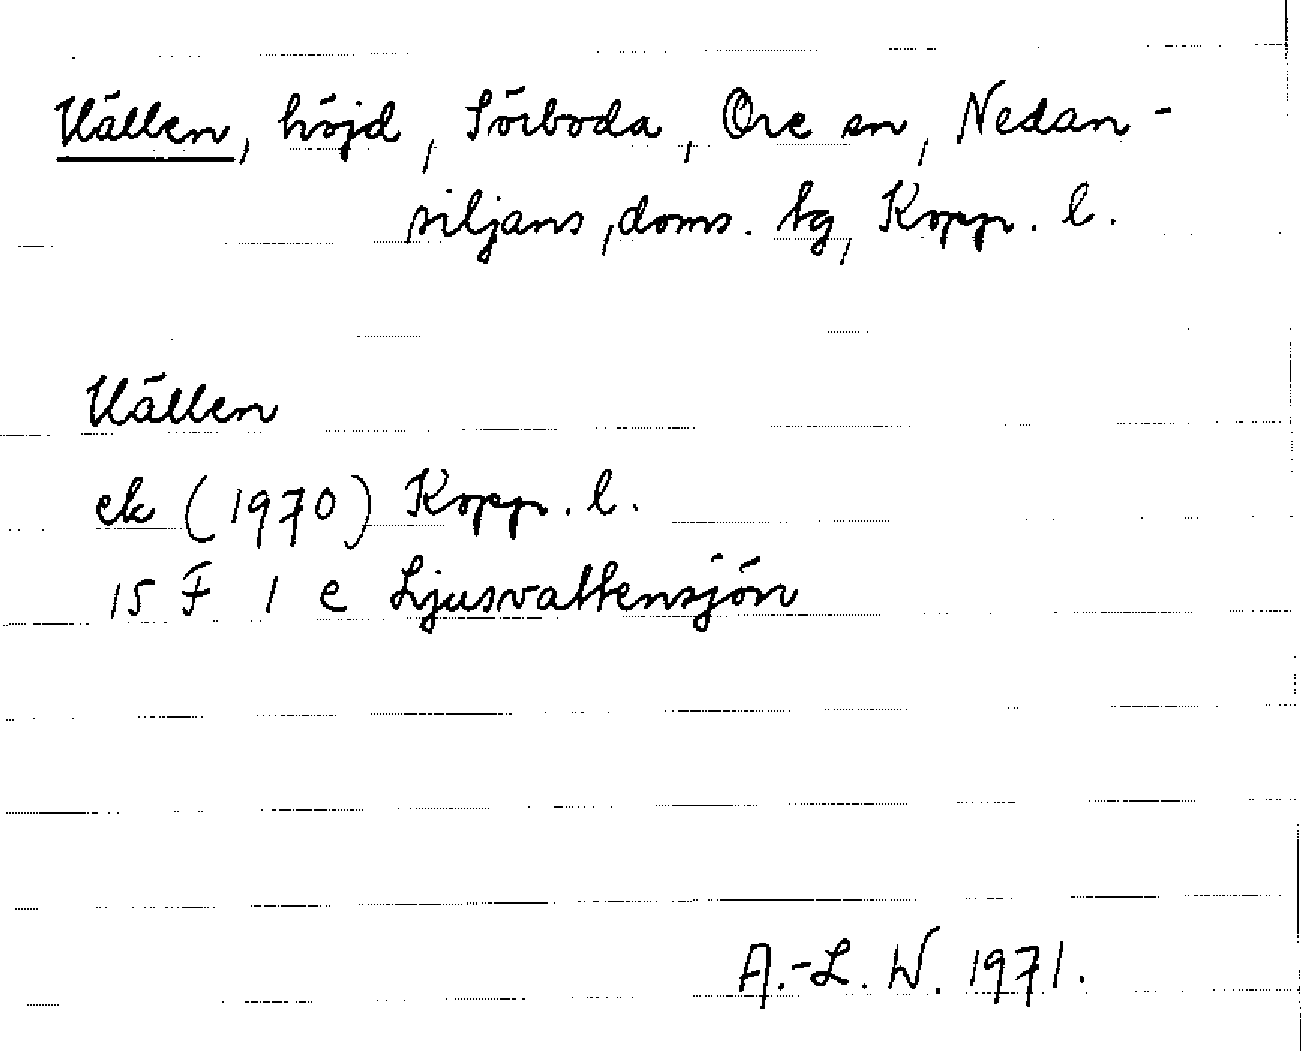 Vällen, höjd, Sörboda, Ore sn, Nedan-
siljans, doms. tg, Kopp. l.
Vällen
ek (1970) Kopp. l.
15 F 1 e Ljusvattensjön
A.-L. W. 1971.